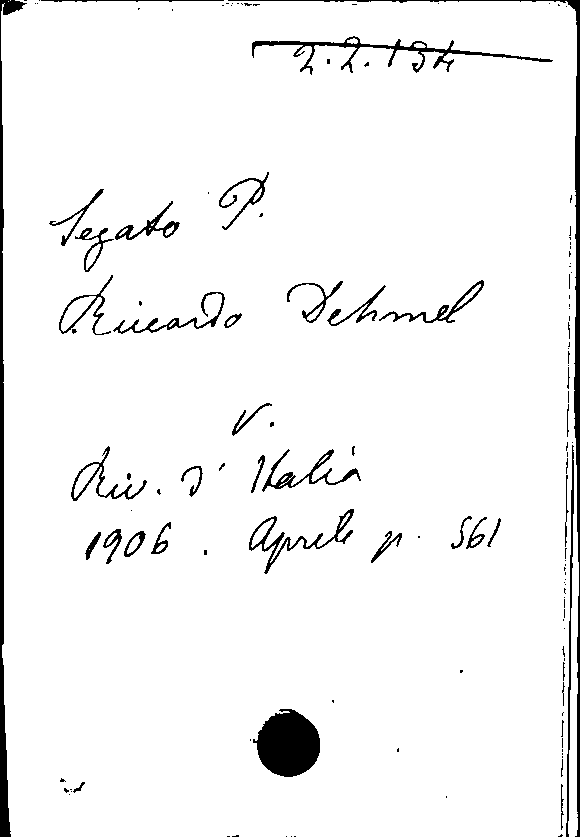 2.2.134
Segato P.
Riccardo Dehmel
v.
Riv. d' Italia
1906. Aprile p. 561